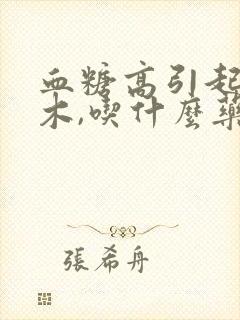 血糖高引起
木,喫什麼藥
張希舟